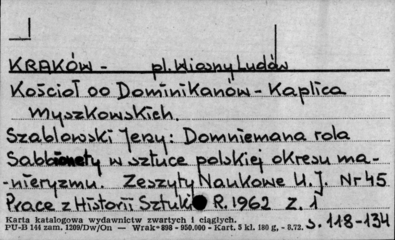 KRAKÓW - pl. Wiosny Ludów
Kościoł OO Dominikanów - Kaplica
Myszkowskich.
Szablowski Jerzy: Domniemana rola
Sabbionety w sztuce polskiej okresu ma-
-nieryzmu. Zeszyty Naukowe U.J. Nr 45
Prace z Historii Sztuki R. 1962 Z. 1
s. 118-134
Karta katalogowa wydawnictw zwartych i ciągłych.
PU-B 144 zam. 1209/Dw/On — Wrak 898 - 950.000 - Kart. 5 kl. 180 g, - 8.72.